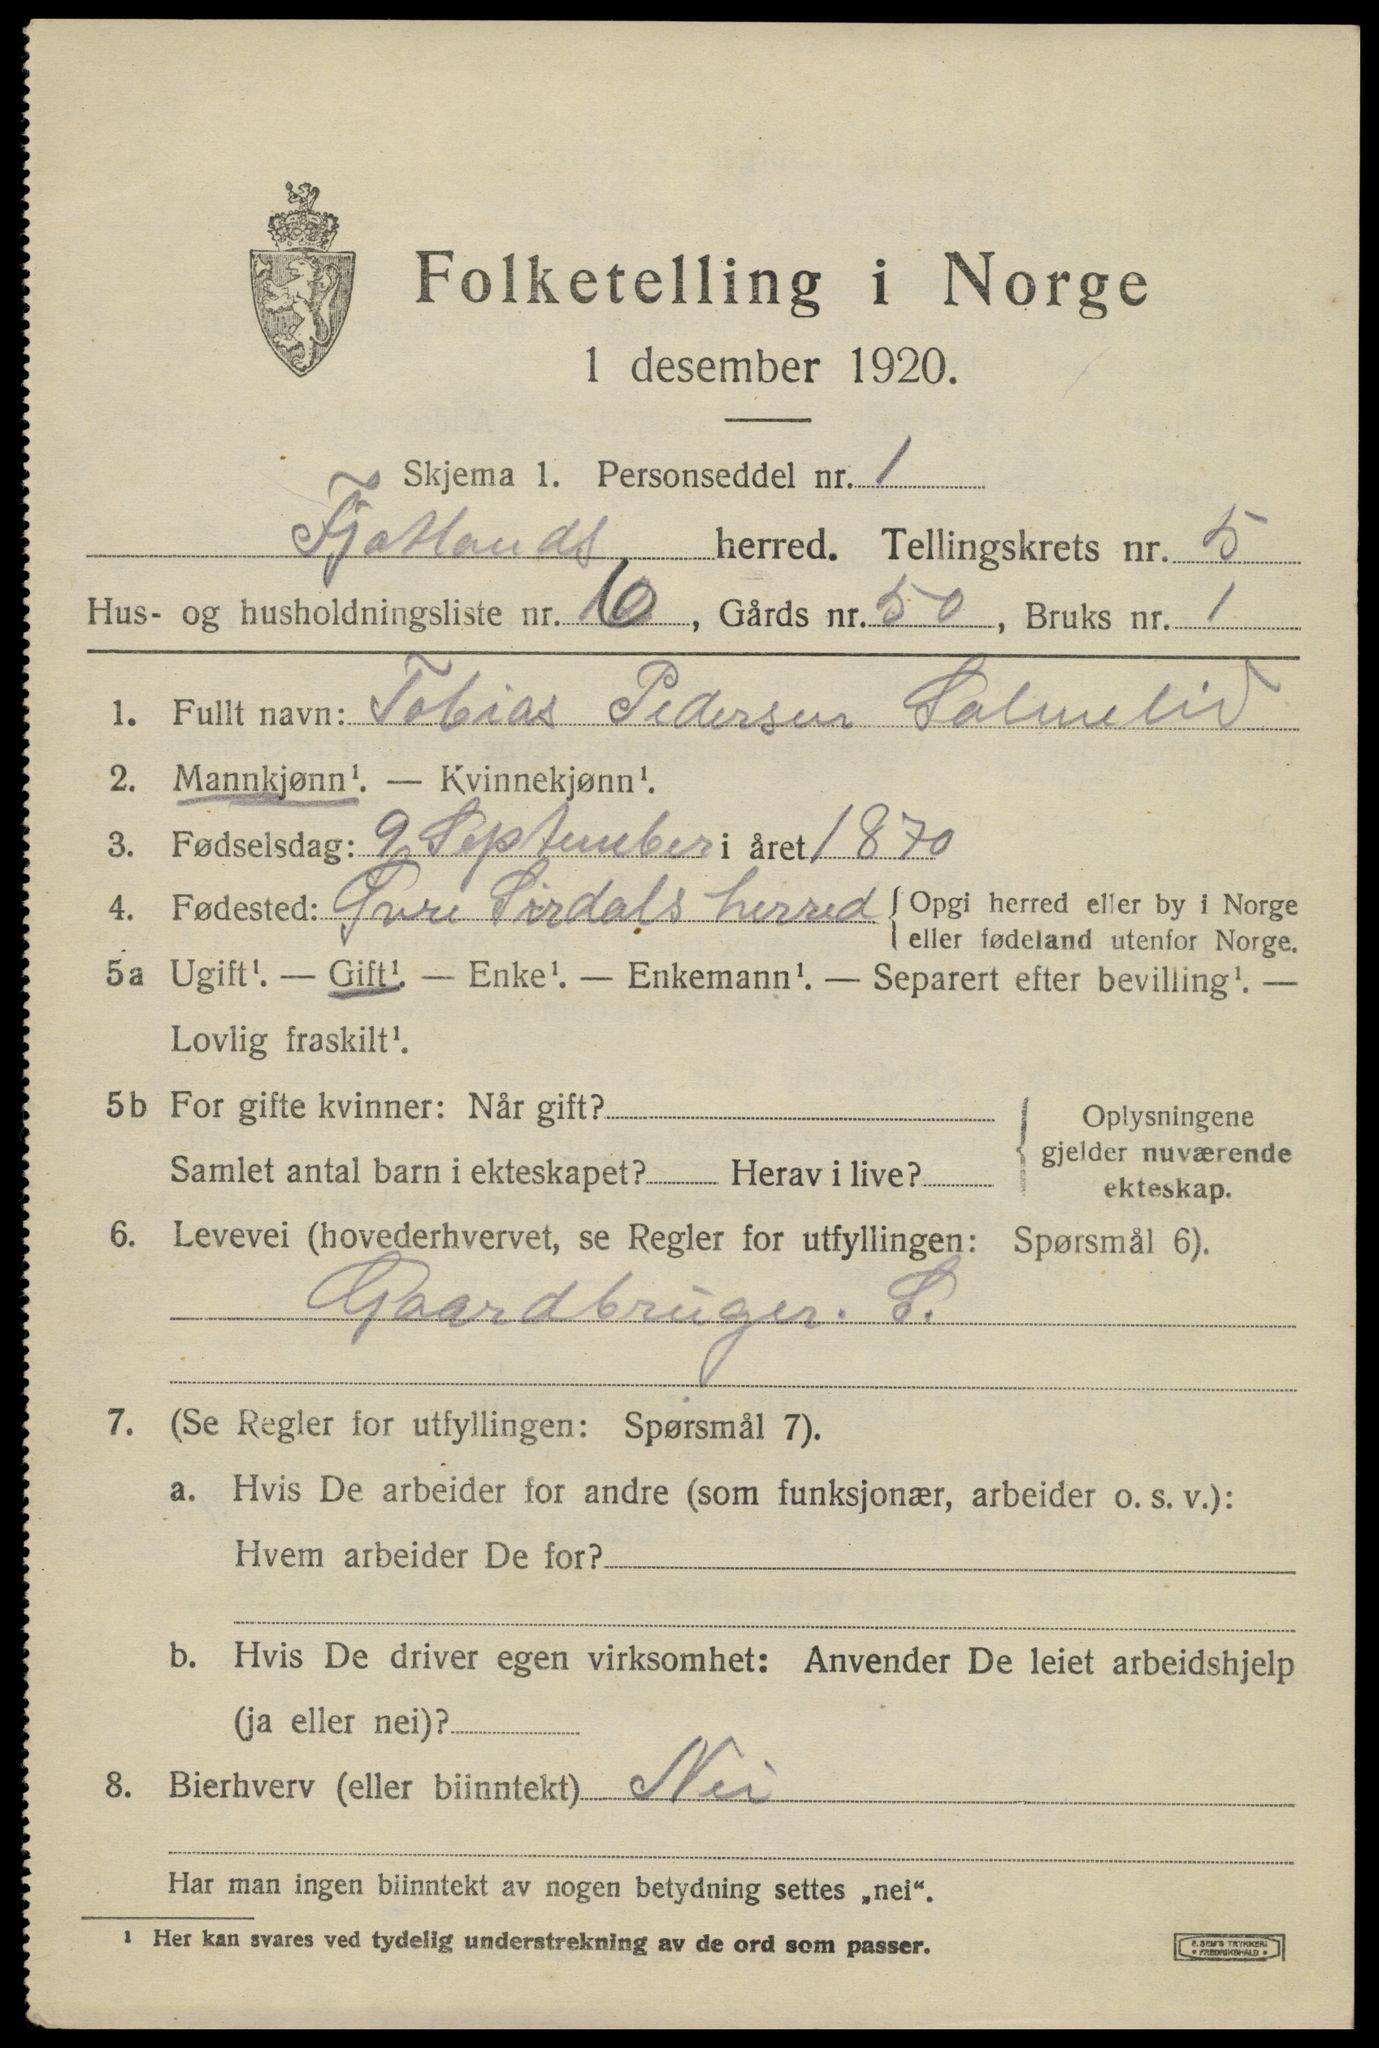 Folketelling i Norge
1 desember 1920.
Skjema 1. Personseddel nr. 1
Fjotlands herred. Tellingskrets nr. 5
Hus- og husholdningsliste nr. 6, Gårds nr. 50, Bruks nr. 1
1. Fullt navn: Tobias Pedersen Salmelid
2. Mannkjønn¹. — Kvinnekjønn¹.
3. Fødselsdag: 9 September i året 1870
4. Fødested: Øvre Sirdals herred { Opgi herred eller by i Norge
eller fødeland utenfor Norge.
5a Ugift¹. — Gift¹. — Enke¹. — Enkemann¹. — Separert efter bevilling¹. —
Lovlig fraskilt¹.
5b For gifte kvinner: Når gift?
Samlet antal barn i ekteskapet? Herav i live?
{ Oplysningene
gjelder nuværende
ekteskap.
6. Levevei (hovederhvervet, se Regler for utfyllingen: Spørsmål 6).
Gaardbruger. S.
7. (Se Regler for utfyllingen: Spørsmål 7).
a. Hvis De arbeider for andre (som funksjonær, arbeider o. s. v.):
Hvem arbeider De for?
b. Hvis De driver egen virksomhet: Anvender De leiet arbeidshjelp
(ja eller nei)?
8. Bierhverv (eller biinntekt) Nei
Har man ingen biinntekt av nogen betydning settes „nei“.
¹ Her kan svares ved tydelig understrekning av de ord som passer.
E. SEM'S TRYKKERI
• FREDRIKSHALD •